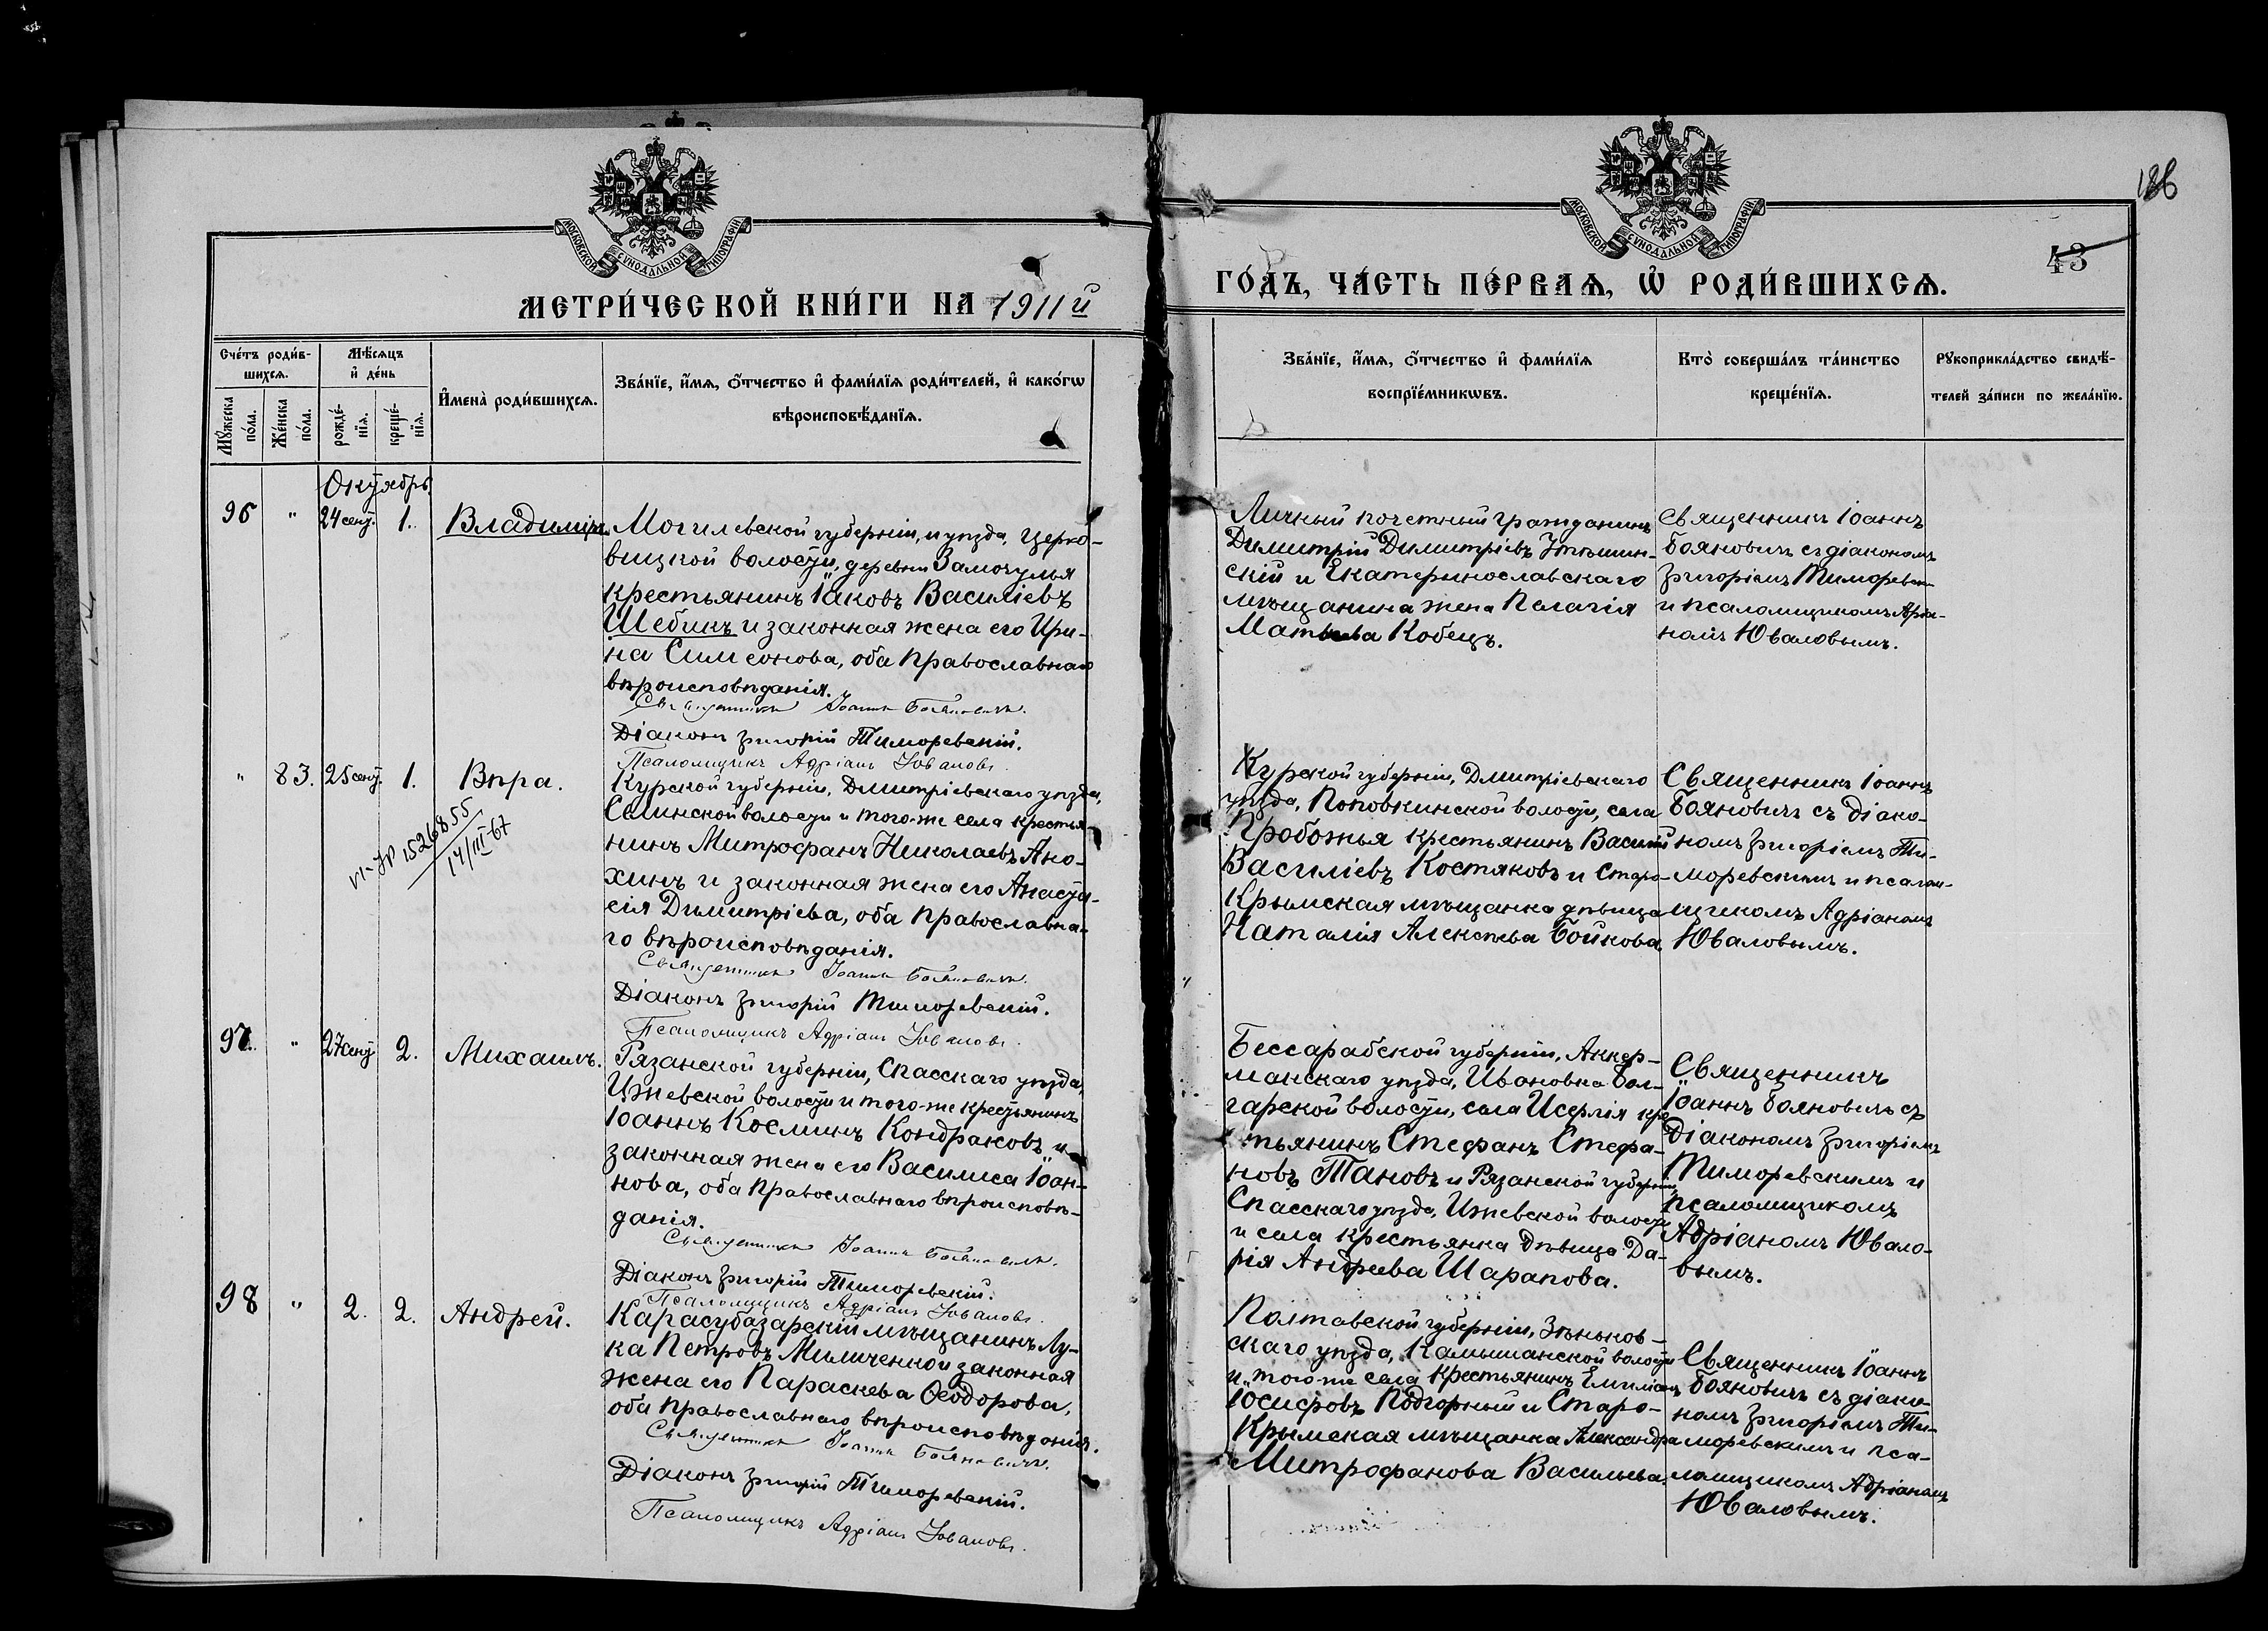 МОСКОВСКОЙ СУНОДАЛЬНОЙ ТИПОГРАФІИ
МЕТРИ́ЧЕСКОЙ КНИ́ГИ НА 1911й
Сче́тъ роди́в-
шихсѧ.
Мѣ́сѧцъ
и҆ де́нь
Мꙋ́жеска
по́ла.
Же́нска
по́ла.
рожде́-
нїѧ.
креще́-
нїѧ.
И҆мена̀ роди́вшихсѧ.
Зва́нїе, и҆́мѧ, ѻ҆́тчество и҆ фами́лїѧ роди́телей, и҆ како́гѡ
вѣроисповѣ́данїѧ.
Октябрь.
96 " 24 сент. 1. Владиміръ.
Могилевской губерніи, и уѣзда, Церко-
вицкой волости, деревни Замочулья
крестьянинъ Іаковъ Василіевъ
Шебинъ и законная жена его Ири-
на Симеонова, оба православнаго
вѣроисповѣданія.
Священникъ Іоаннъ Бояновичъ.
Діаконъ Григорій Тиморевскій.
Псаломщикъ Адріанъ Юваловъ.
" 83. 25 сент. 1. Вѣра.
15268 55
14/III-67
Курской губерніи, Дмитріевскаго уѣзда,
Селинской волости и того-же села крестья-
нинъ Митрофанъ Николаевъ Ано-
хинъ и законная жена его Анаста-
сія Димитріева, оба православна-
го вѣроисповѣданія.
Священникъ Іоаннъ Бояновичъ.
Діаконъ Григорій Тиморевскій.
Псаломщикъ Адріанъ Юваловъ.
97. " 27 сент. 2. Михаилъ.
Рязанской губерніи, Спасскаго уѣзда,
Ижевской волости и того-же крестьянинъ
Іоаннъ Косминъ Кондраковъ и
законная жена его Василиса Іоан-
нова, оба православнаго вѣроисповѣ-
данія.
Священникъ Іоаннъ Бояновичъ.
Діаконъ Григорій Тиморевскій.
Псаломщикъ Адріанъ Юваловъ.
98 " 2. 2. Андрей.
Карасубазарскій мѣщанинъ Лу-
ка Петровъ Миличенко и законная
жена его Параскева Ѳеодорова,
оба православнаго вѣроисповѣданія.
Священникъ Іоаннъ Бояновичъ.
Діаконъ Григорій Тиморевскій.
Псаломщикъ Адріанъ Юваловъ.
186
43
МОСКОВСКОЙ СУНОДАЛЬНОЙ ТИПОГРАФІИ
ГО́ДЪ, ЧА́СТЬ ПЕ́РВАѦ, Ѽ РОДИ́ВШИХСѦ.
Зва́нїе, и҆́мѧ, ѻ҆́тчество и҆ фами́лїѧ
воспрїе́мникѡвъ.
Кто̀ соверша́лъ та́инство
креще́нїѧ.
Рꙋкоприкла́дство свидѣ́-
телей за́писи по жела́нїю.
Личный почетный гражданинъ
Димитрій Димитріевъ
скій и Екатеринославскаго
мѣщанина жена Пелагія
Матвѣева Кобецъ.
Священникъ Іоаннъ
Бояновичъ съ діакономъ
Григоріемъ Тиморевск-
и псаломщикомъ Адріа-
номъ Юваловымъ.
Курской губерніи, Дмитріевскаго
уѣзда, Поповкинской волости, села
Пробожья крестьянинъ Василій
Василіевъ Костяковъ и Старо-
крымская мѣщанка дѣвица
Наталія Алексѣева Бойкова.
Священникъ Іоаннъ
Бояновичъ съ діако-
номъ Григоріемъ Ти-
моревскимъ и псалом-
щикомъ Адріаномъ
Юваловымъ.
Бессарабской губерніи, Аккер-
манскаго уѣзда, Ивановка Бол-
гарской волости, села Исерлія кре-
стьянинъ Стефанъ Стефа-
новъ Тановъ и Рязанской губерніи,
Спасскаго уѣзда, Ижевской волости
и села крестьянка дѣвица Да-
рія Андреева Шарапова.
Священникъ
Іоаннъ Бояновичъ съ
діакономъ Григоріемъ
Тиморевскимъ и
псаломщикомъ
Адріаномъ Ювало-
вымъ.
Полтавской губерніи, Зѣньков-
скаго уѣзда, Камышанской волости
и того-же села крестьянинъ Емиліанъ
Юсифовъ Подгорный и Старо-
крымская мѣщанка Александра
Митрофанова Васильева.
Священникъ Іоаннъ
Бояновичъ съ діако-
номъ Григоріемъ Ти-
моревскимъ и пса-
ломщикомъ Адріаномъ
Юваловымъ.